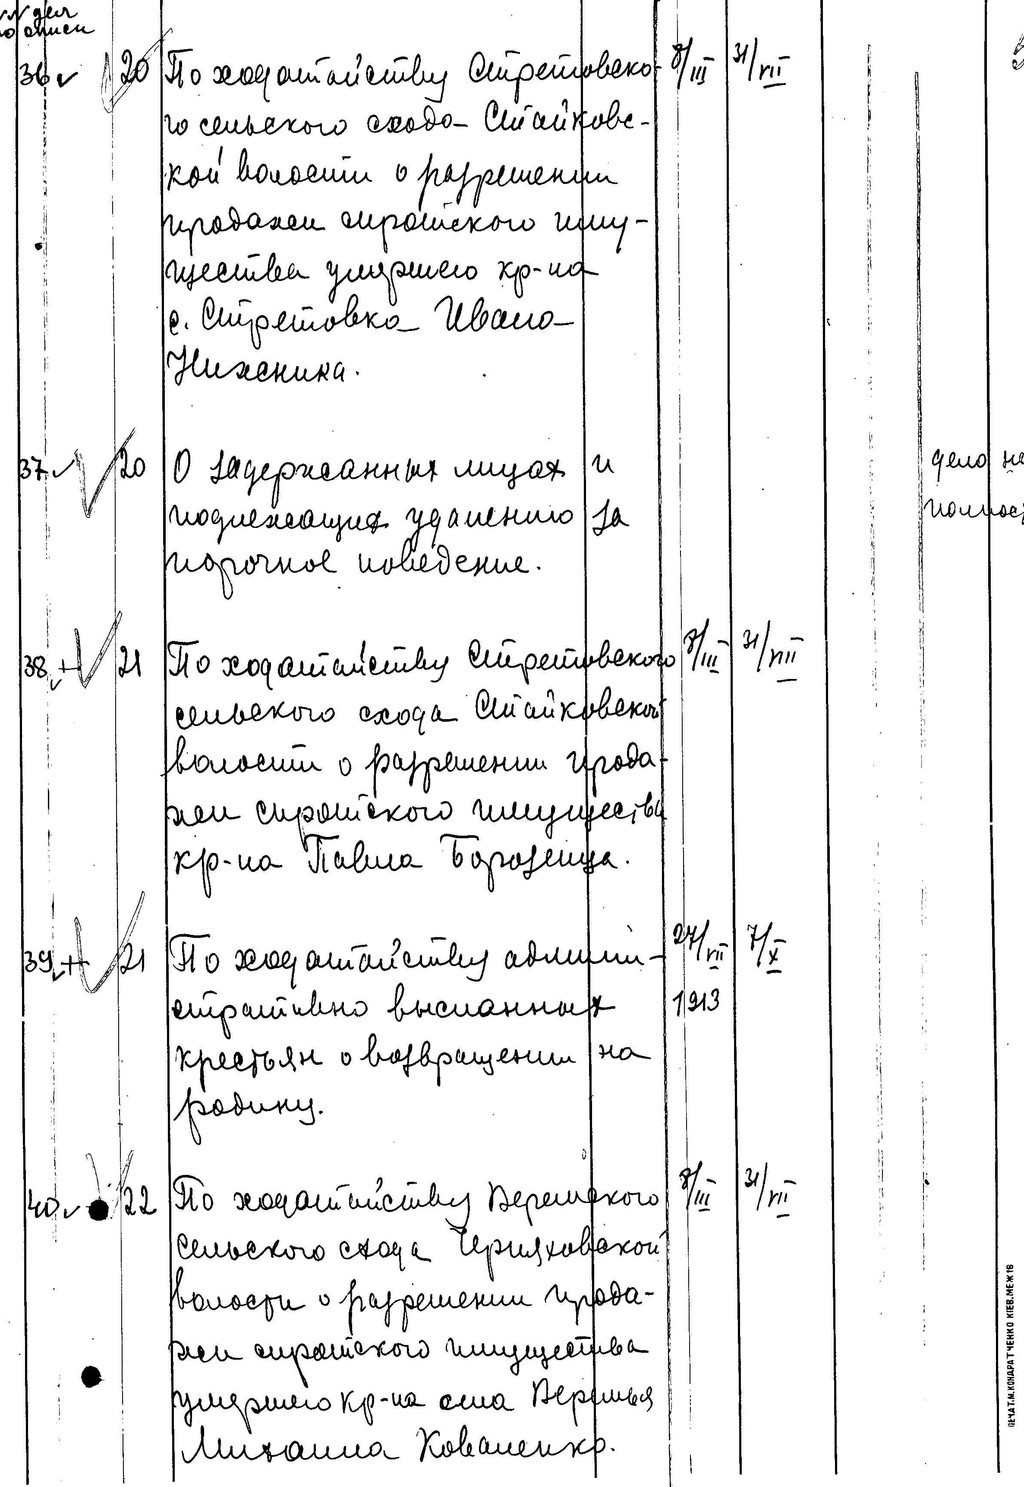 № дел
по описи
36 20 По ходатайству Стретовско- 8/III 31/VII
го сельского схода Стайковс-
кой волости о разрешении
продажи сиротского иму-
щества умершего кр-на
с. Стретовка Ивана
Нижника.
37 20 О задержанных лицах и дело не
подлежащих удалению за полнос
порочное поведение.
38 + 21 По ходатайству Стретовского 8/III 31/VII
сельского схода Стайковской
волости о разрешении прода-
жи сиротского имущества
кр-на Павла Богозенца.
39 + 21 По ходатайству админи- 27/VII 7/X
стративно высланных 1913
крестьян о возвращении на
родину.
40 22 По ходатайству Веремского 8/III 31/VII
сельского схода Черняховской
волости о разрешении прода-
жи сиротского имущества
умершего кр-на села Веремья
Михаила Коваленко.
ПЕЧАТ. М. КОНДРАТЧЕНКО КІЕВ. МЕЖ 18